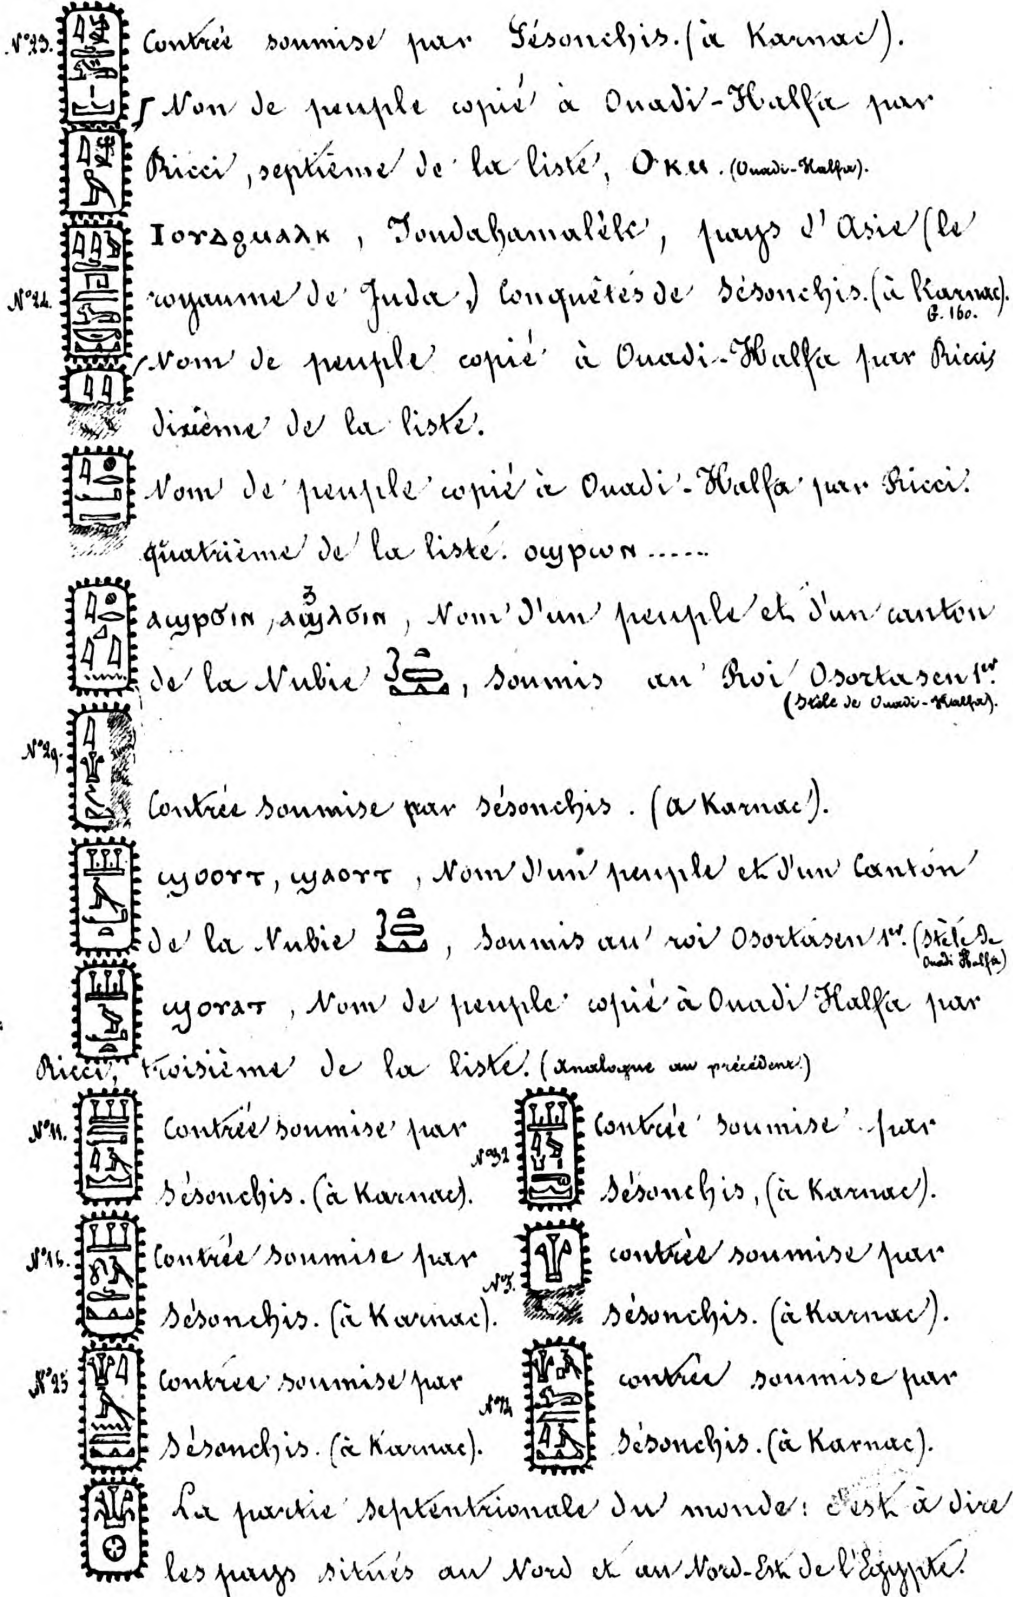 N° 23. Contrée soumise par Sésonchis. (à Karnac).
Non de peuple copié à Ouadi-Halfa par
Ricci, septième de la liste, OKU. (Ouadi-Halfa).
ⲒⲞⲨⲆϨⲘⲀⲗⲔ, Ioudahamalèk, pays d'Asie (le
N° 24. royaume de Juda,) Conquêtes de Sésonchis. (à Karnac).
G. 160.
Nom de peuple copié à Ouadi-Halfa par Ricci,
dixième de la liste.
Nom de peuple copié à Ouadi-Halfa par Ricci.
quatrième de la liste. ⲟϣⲣⲱⲛ ......
ⲁϣⲣϭⲓⲛ, ⲁϣⲗϭⲓⲛ, Nom d'un peuple et d'un canton
de la Nubie, soumis au Roi Osortasen 1er.
(Stèle de Ouadi-Halfa).
N° 29.
Contrée soumise par Sésonchis. (à Karnac).
ϣⲟⲟⲩⲧ, ϣⲁⲟⲩⲧ, Nom d'un peuple et d'un Canton
de la Nubie, soumis au roi Osortasen 1er. (Stèle de
Ouadi Halfa)
ϣⲟⲩⲁⲧ, Nom de peuple copié à Ouadi Halfa par
Ricci, troisième de la liste. (Analogue au précédent.)
N° 11. Contrée soumise par
Sésonchis. (à Karnac).
N° 32 Contrée soumise par
Sésonchis, (à Karnac).
N° 16. Contrée soumise par
Sésonchis. (à Karnac).
N° 5. contrée soumise par
Sésonchis. (à Karnac).
N° 25 contrée soumise par
Sésonchis. (à Karnac).
contrée soumise par
Sésonchis. (à Karnac).
La partie septentrionale du monde: c'est à dire
les pays situés au Nord et au Nord-Est de l'Egypte.